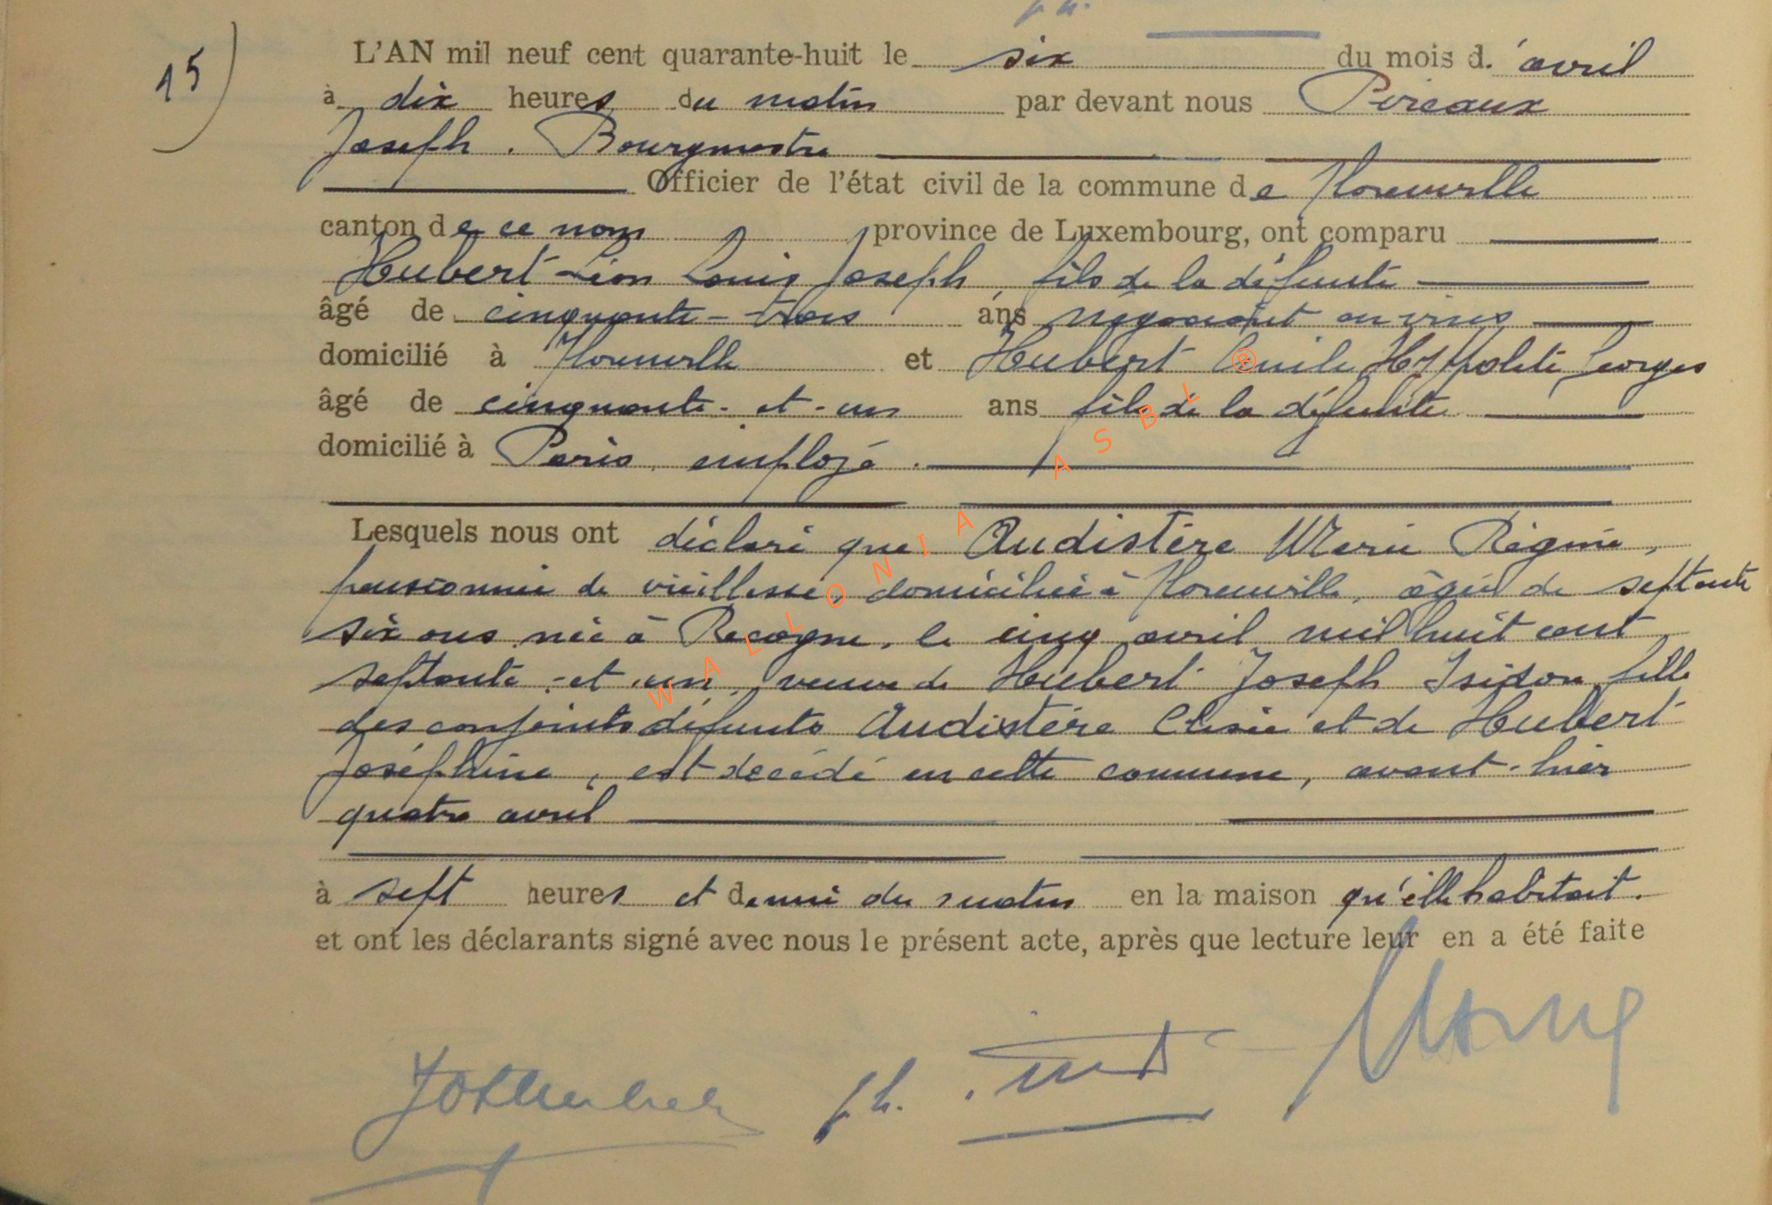 15)
L'AN mil neuf cent quarante-huit le six du mois d'avril
à dix heures du matin par devant nous Pireaux
Joseph. Bourgmestre
Officier de l'état civil de la commune de Florenville
canton de ce nom province de Luxembourg, ont comparu
Hubert Léon Louis Joseph, fils de la défunte
âgé de cinquante-trois ans négociant en vins
domicilié à Florenville et Hubert Emile Hyppolite Georges
âgé de cinquante-et-un ans fils de la défunte
domicilié à Paris, employé.
Lesquels nous ont déclaré que Audistère Marie Régine,
pensionnée de vieillesse, domiciliée à Florenville, âgée de septante
six ans née à Recogne, le cinq avril mil huit cent
septante-et-un, veuve de Hubert Joseph fille
des conjoints défunts Audistère et de Hubert
Joséphine, est décédé en cette commune, avant-hier
quatre avril
à sept heures et demi du matin en la maison qu'elle habitait.
et ont les déclarants signé avec nous le présent acte, après que lecture leur en a été faite
WALLONIA ASBL ®